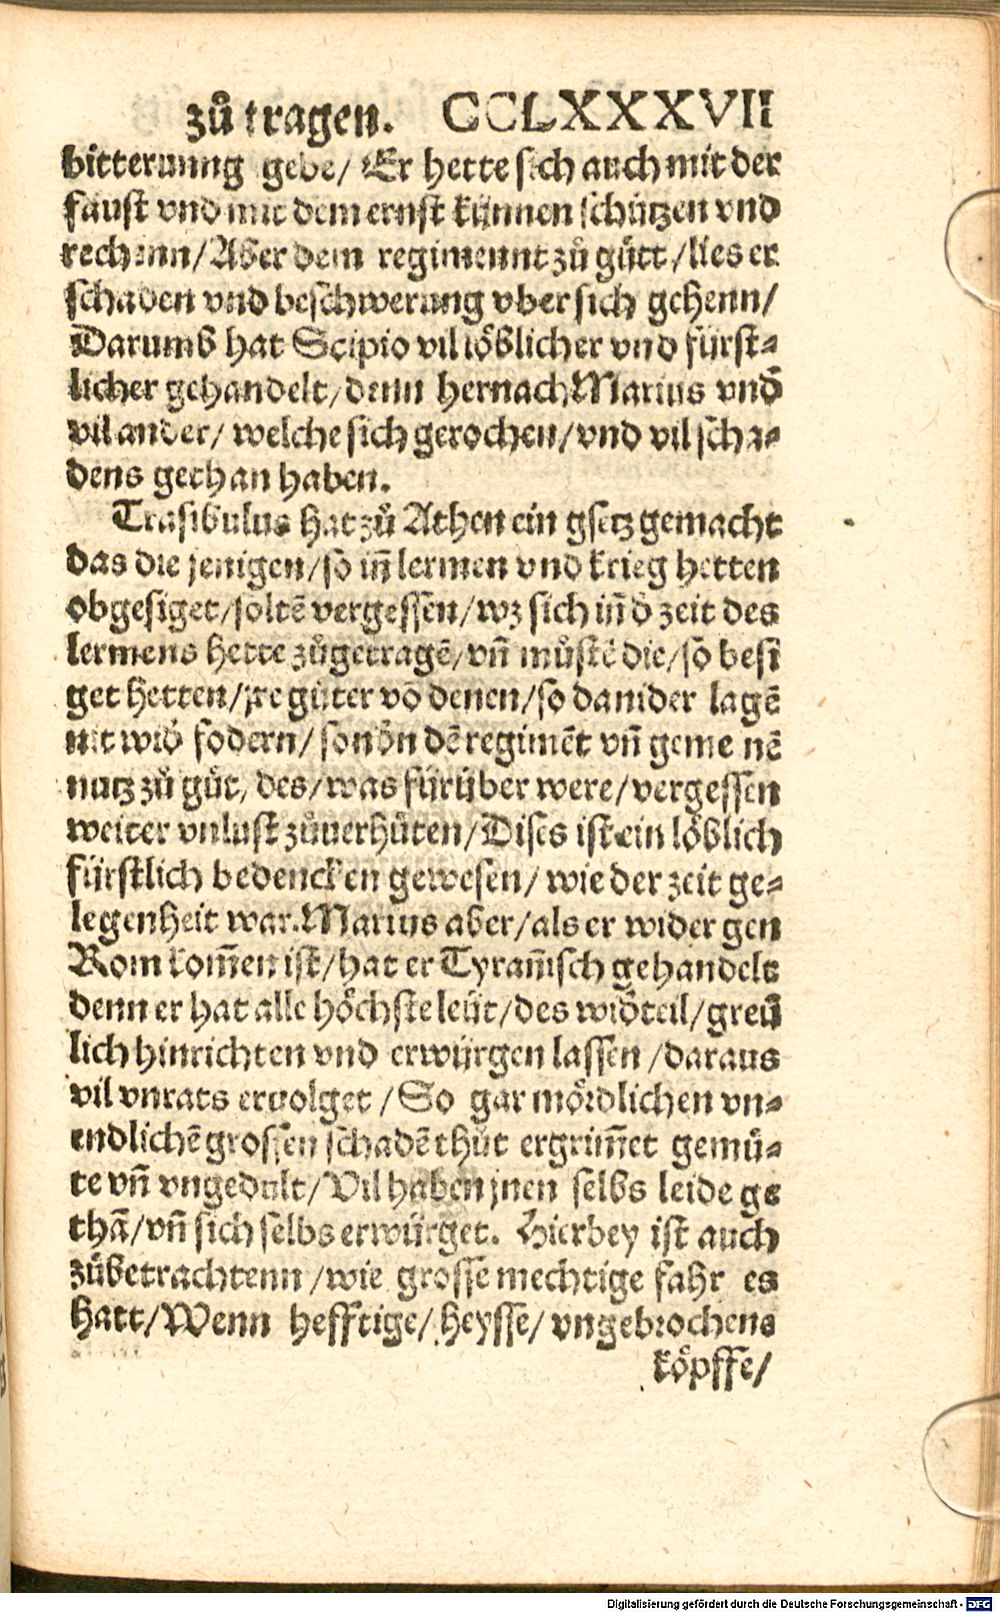 zů tragen. CCLXXXVII
bitterunng gebe/ Er hette sich auch mit der
faust vnd mit dem ernst künnen schützen vnd
rechenn/Aber dem regimennt zů gůtt/lies er
schaden vnd beschwerung vber sich gehenn/
Darumb hat Scipio vil löblicher vnd fürst-
licher gehandelt/denn hernach Marius vnd
vil ander/ welche sich gerochen/vnd vil scha-
dens gethan haben.
Trasibulus hat zů Athen ein gsetz gemacht
das die jenigen/so iñ lermen vnd krieg hetten
obgesiget/soltē vergessen/wz sich iñ d̄ zeit des
lermens hette zůgetragē/vñ můstē die/so besi
get hetten/jre gůter võ denen/so danider lagē
nit wid̄ fodern/sond̄n dē regimēt vñ geme nē
nutz zů gůt, des/was fürüber were/vergessen
weiter vnlust zůuerhůten/Dises ist ein löblich
fürstlich bedencken gewesen/ wie der zeit ge-
legenheit war.Marius aber/als er wider gen
Rom kom̄en ist/hat er Tyram̄isch gehandelt
denn er hat alle höchste leüt/des wid̄teil/greü
lich hinrichten vnd erwürgen lassen /daraus
vil vnrats eruolget /So gar mördlichen vn-
endlichē grossen schadē thůt ergrim̄et gemü-
te vñ vngedult/Vil haben jnen selbs leide ge
thã/vñ sich selbs erwürget. Hierbey ist auch
zůbetrachtenn /wie grosse mechtige fahr es
hatt/Wenn hefftige/ heysse/ vngebrochens
köpffe/
Digitalisierung gefördert durch die Deutsche Forschungsgemeinschaft - DFG